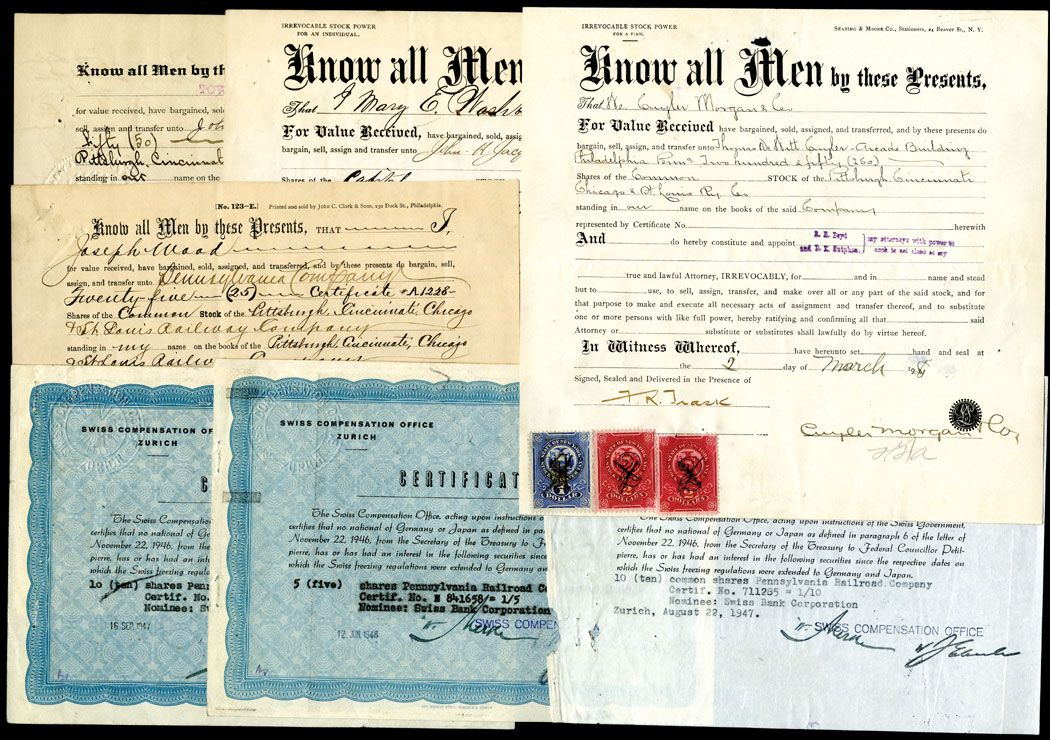 Know all Men by th
for value received, have bargained, sol
sell, assign and transfer unto
Fifty (50)
Pittsburgh, Cincinnat
standing in our name on the
IRREVOCABLE STOCK POWER
FOR AN INDIVIDUAL.
Know all Men
That I Mary E.
For Value Received, have bargained, sold, assig
bargain, sell, assign and transfer unto John R.
Shares of the Capital
IRREVOCABLE STOCK POWER
FOR A FIRM.
SEARING & MOORE CO., Stationers, 24 Beaver St., N. Y.
Know all Men by these Presents,
That We Cuyler Morgan & Co
For Value Received have bargained, sold, assigned, and transferred, and by these presents do
bargain, sell, assign and transfer unto Thomas De Witt Cuyler - Arcade Building
Philadelphia Penna Two hundred & fifty (250)
Shares of the Common STOCK of the Pittsburgh Cincinnati
Chicago & St. Louis Ry. Co
standing in our name on the books of the said Company
represented by Certificate No. herewith
And do hereby constitute and appoint
my attorneys with power to
true and lawful Attorney, IRREVOCABLY, for and in name and stead
but to use, to sell, assign, transfer, and make over all or any part of the said stock, and for
that purpose to make and execute all necessary acts of assignment and transfer thereof, and to substitute
one or more persons with like full power, hereby ratifying and confirming all that said
Attorney or substitute or substitutes shall lawfully do by virtue hereof.
In Witness Whereof, have hereunto set hand and seal at
the 2 day of March 19
Signed, Sealed and Delivered in the Presence of
F. R. Trask
Cuyler Morgan & Co,
DOLLAR
DOLLARS
DOLLARS
[No. 123—E.] Printed and sold by John C. Clark & Sons, 230 Dock St., Philadelphia.
Know all Men by these Presents, THAT I,
Joseph Wood
for value received, have bargained, sold, assigned, and transferred, and by these presents do bargain, sell,
assign, and transfer unto Pennsylvania Company
Twenty-five (25) Certificate #A1228-
Shares of the Common Stock of the Pittsburgh, Cincinnati, Chicago
& St. Louis Railway Company
standing in my name on the books of the Pittsburgh, Cincinnati, Chicago
& St Louis Railway Company
SWISS COMPENSATION OFFICE
ZURICH
C
The Swiss Compensation
certifies that no national of G
November 22, 1946, from the
pierre, has or has had an inte
which the Swiss freezing regul
10 (ten) shares Pen
Certif. No.
Nominee: S
16 SEP. 1947
SWISS COMPENSATION OFFICE
ZURICH
CERTIFICAT
The Swiss Compensation Office, acting upon instructions o
certifies that no national of Germany or Japan as defined in
November 22, 1946, from the Secretary of the Treasury to
pierre, has or has had an interest in the following securities
which the Swiss freezing regulations were extended to Germany an
5 (five) shares Pennsylvania Railroad Co
Certif. No. N 841658/ 1/5
Nominee: Swiss Bank Corporation
SWISS COMPEN
The Swiss Compensation Office, acting upon instructions of the Swiss Government,
certifies that no national of Germany or Japan as defined in paragraph 6 of the letter of
November 22, 1946, from the Secretary of the Treasury to Federal Councillor Petit-
pierre, has or has had an interest in the following securities since the respective dates on
which the Swiss freezing regulations were extended to Germany and Japan.
10 (ten) common shares Pennsylvania Railroad Company
Certif. No. 711285 = 1/10
Nominee: Swiss Bank Corporation
Zurich, August 22, 1947.
SWISS COMPENSATION OFFICE